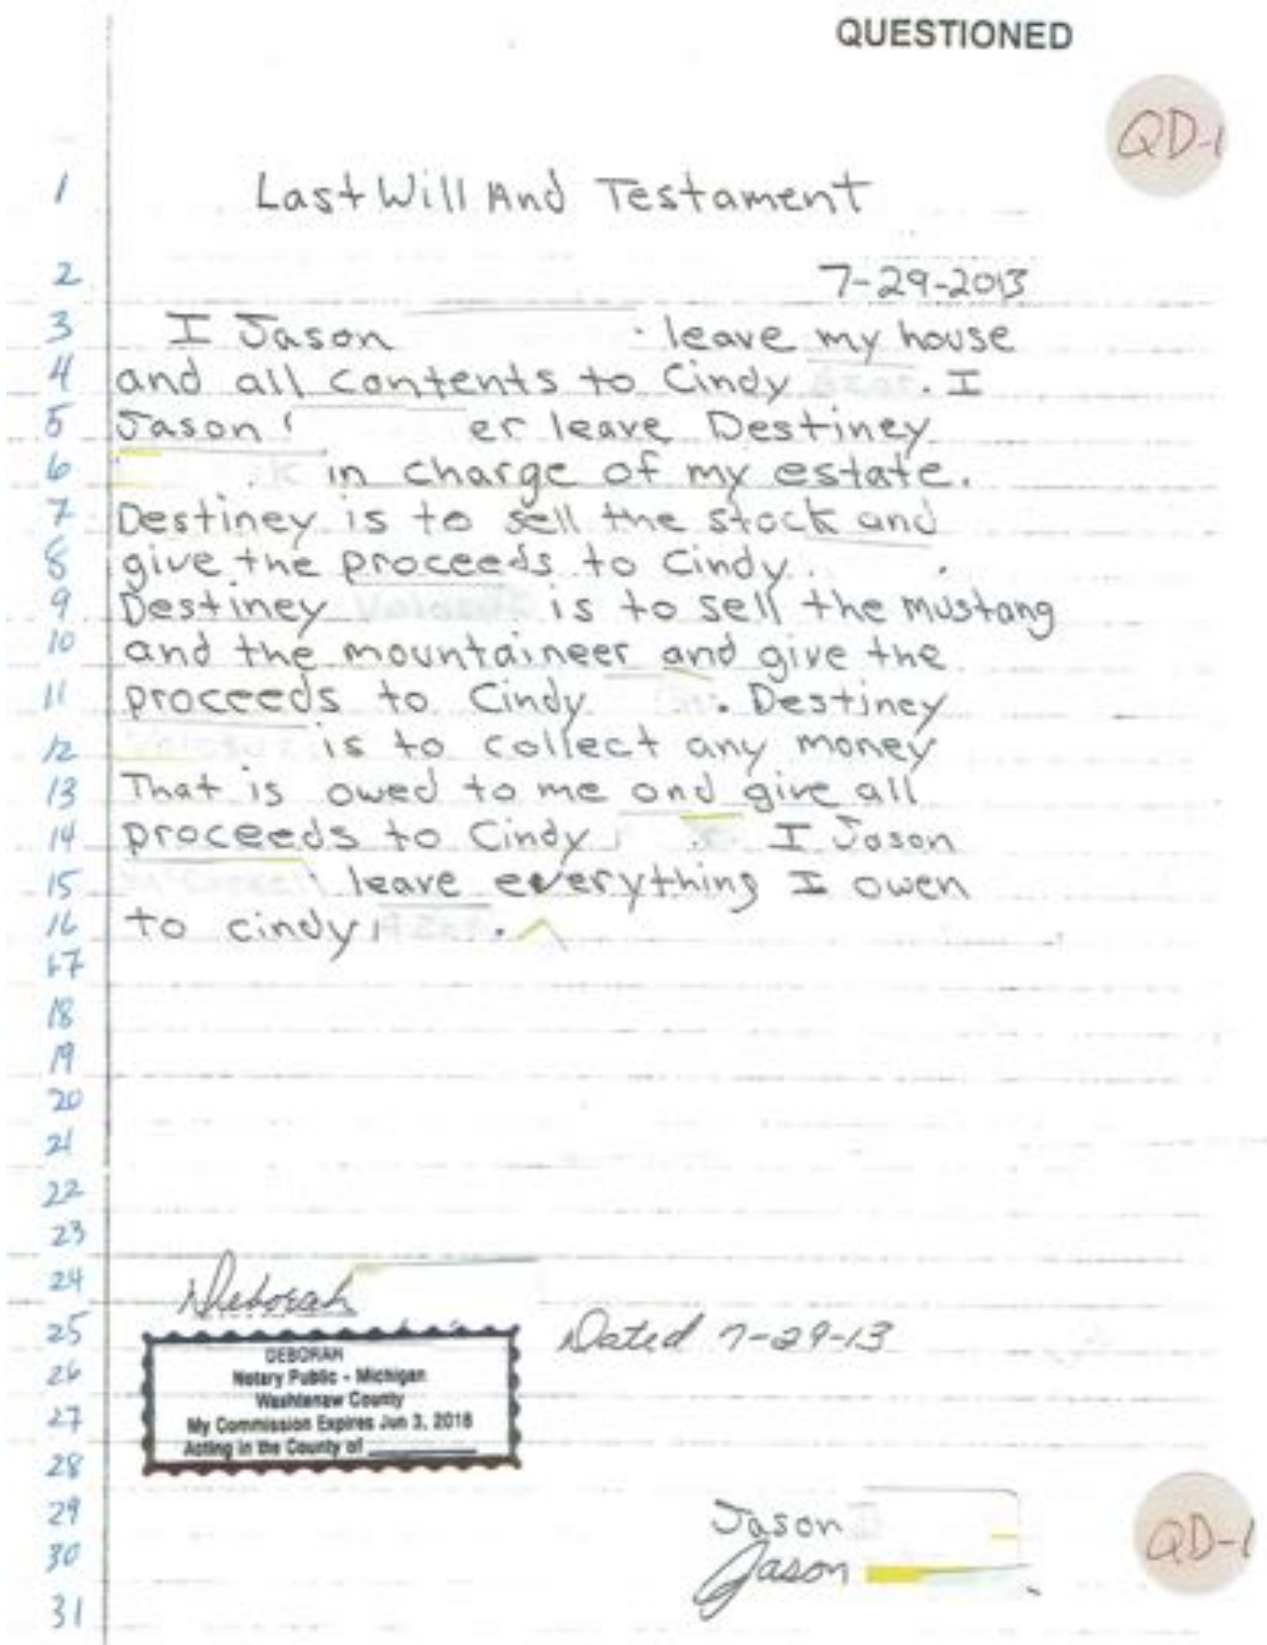 QUESTIONED
QD-1
1 Last Will And Testament
2 7-29-2013
3 I Jason leave my house
4 and all contents to Cindy . I
5 Jason er leave Destiney
6 in charge of my estate.
7 Destiney is to sell the stock and
8 give the proceeds to Cindy.
9 Destiney is to sell the mustang
10 and the mountaineer and give the
11 proceeds to Cindy . Destiney
12 is to collect any money
13 That is owed to me and give all
14 proceeds to Cindy I Jason
15 leave everything I owen
16 to cindy .
17
18
19
20
21
22
23
24 Deborah
25 Dated 7-29-13
26 DEBORAH
Notary Public - Michigan
Washtenaw County
27 My Commission Expires Jun 3, 2018
Acting in the County of
28
29 Jason
30 Jason
QD-1
31